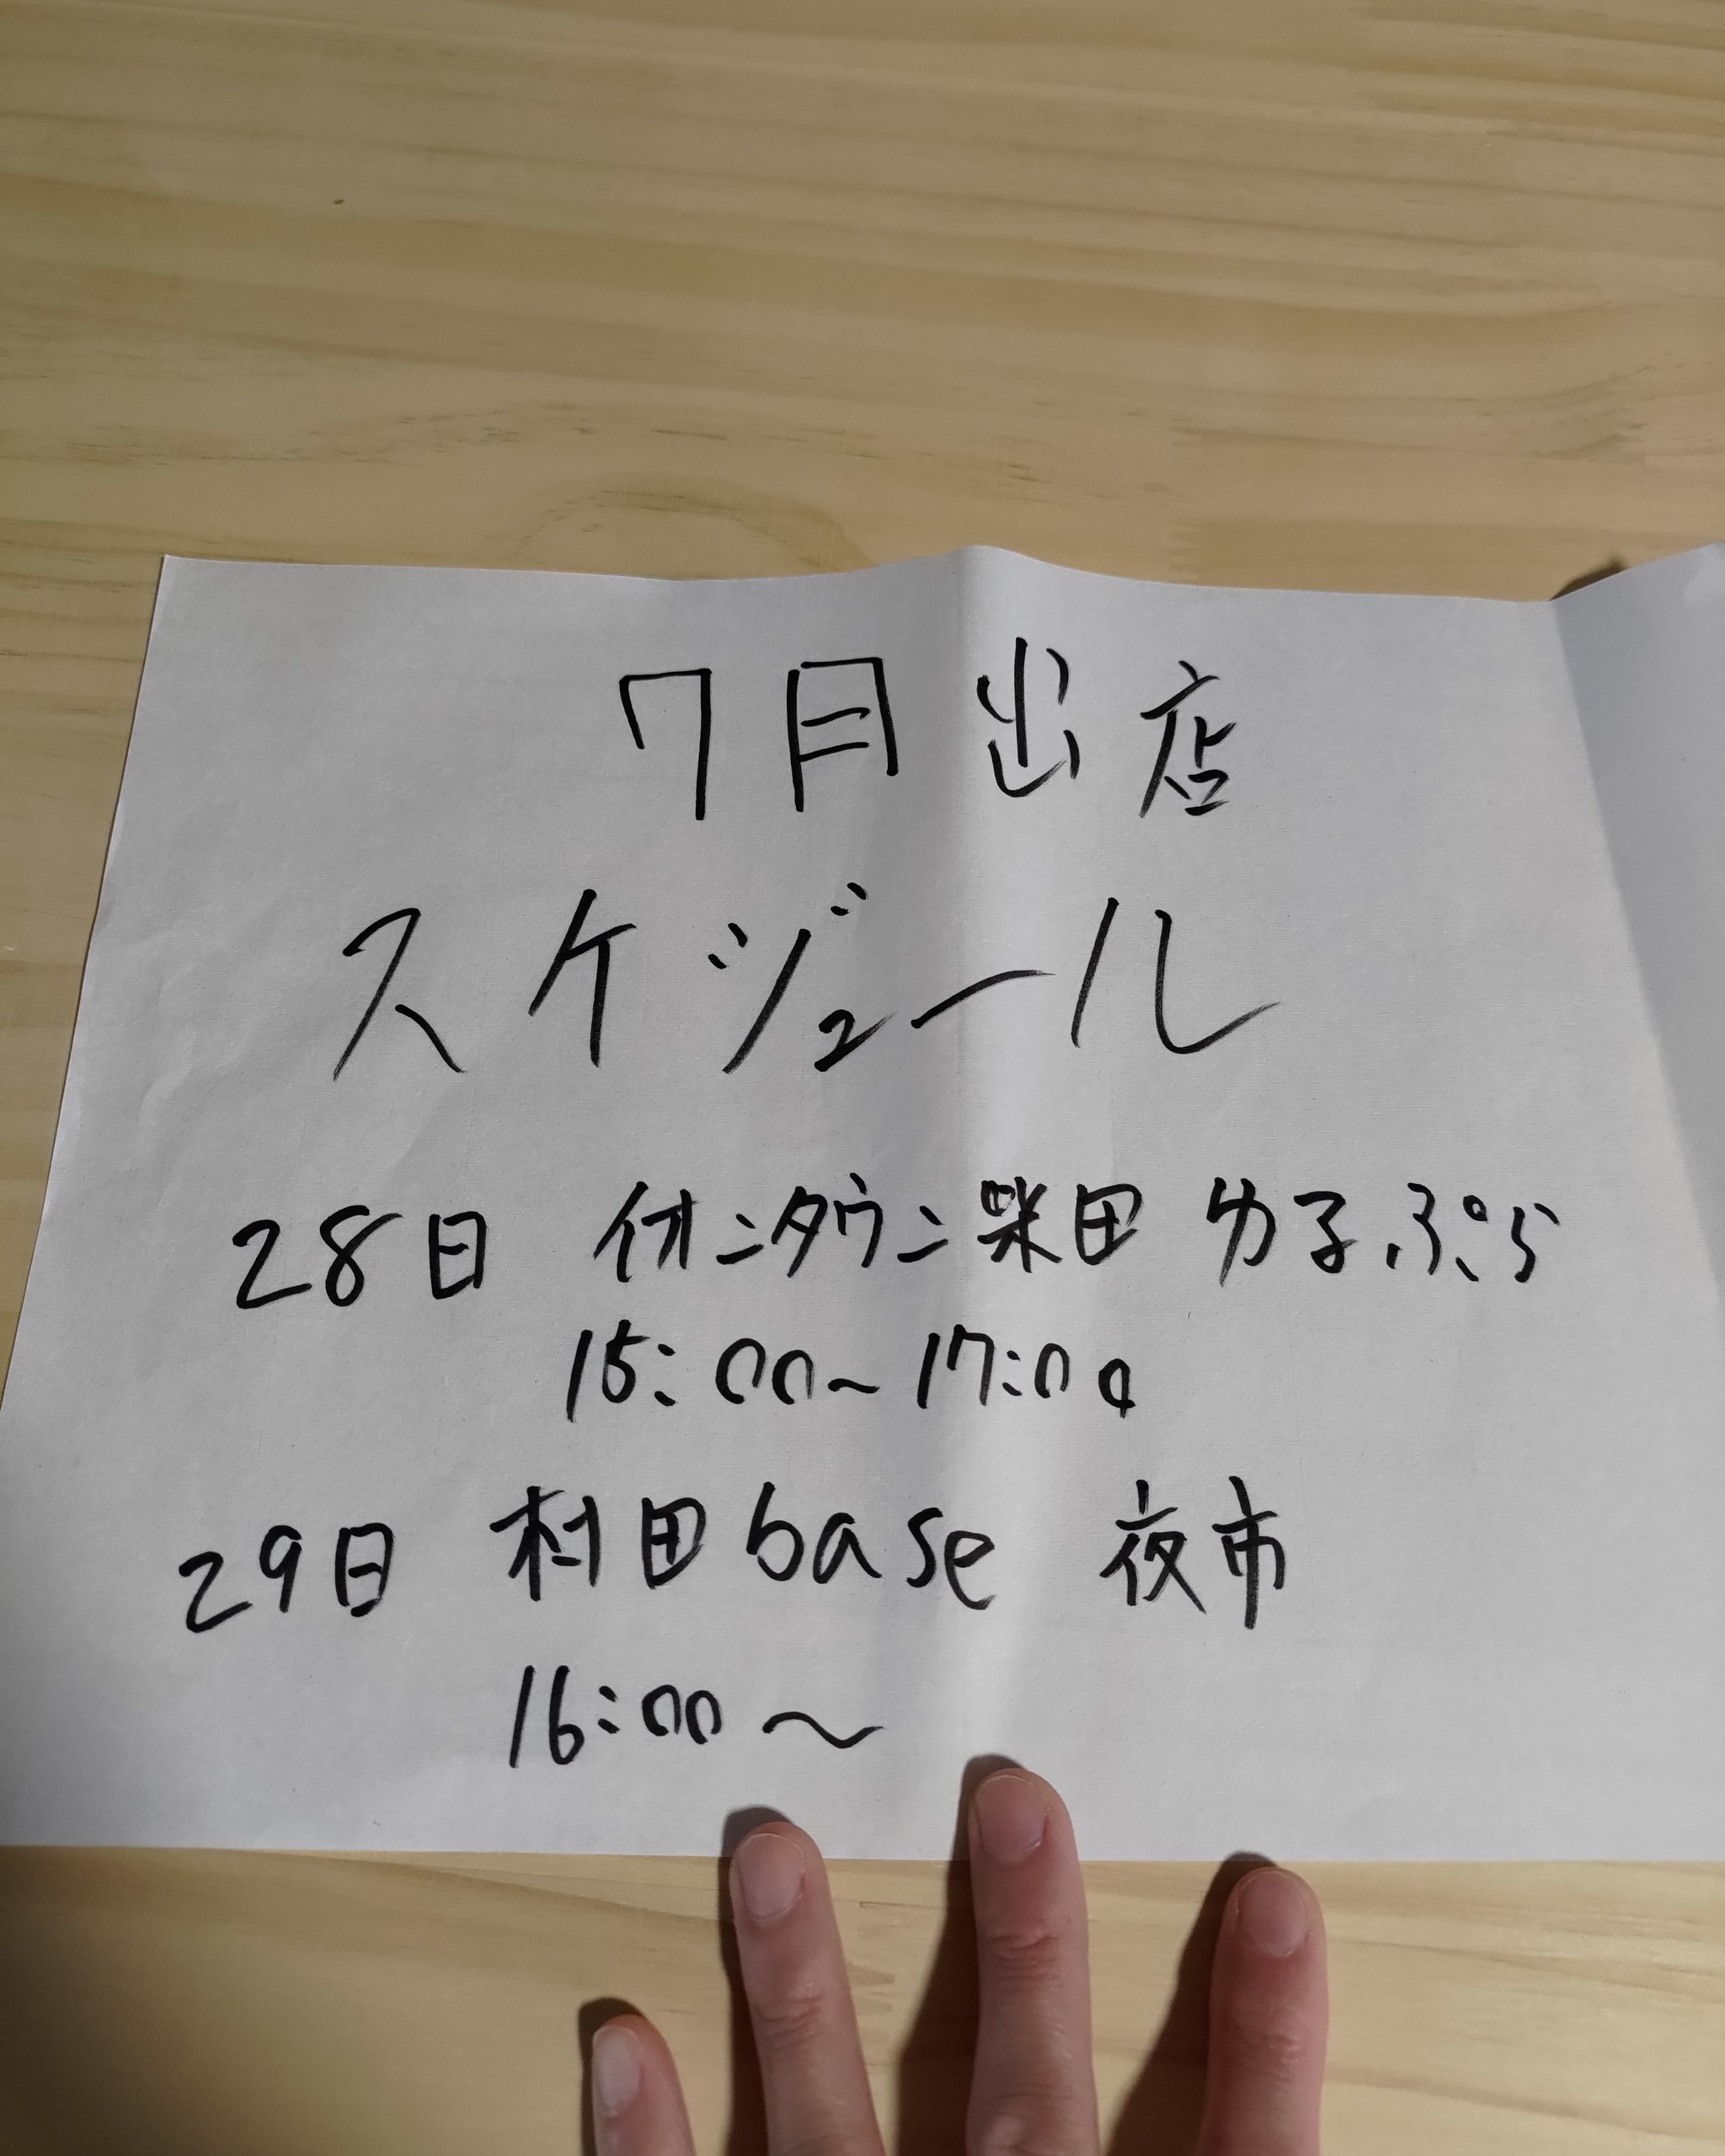 7月出店
スケジュール
28日 イオンタウン柴田 ゆるぷら
15:00~17:00
29日 村田base 夜市
16:00~